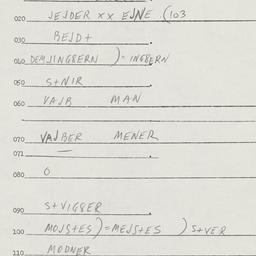 020 JEJDER XX EJNE (103
030 BEJD+
040 DEMJINGBERN ) = INGBERN
050 S+NIR
060 VAJB MAN
070 VAJBER MENER
071 —
080 O
090 S+VIGBER
100 MOJS+ES ) = MEJS+ES ) S+VER
110 MODNER